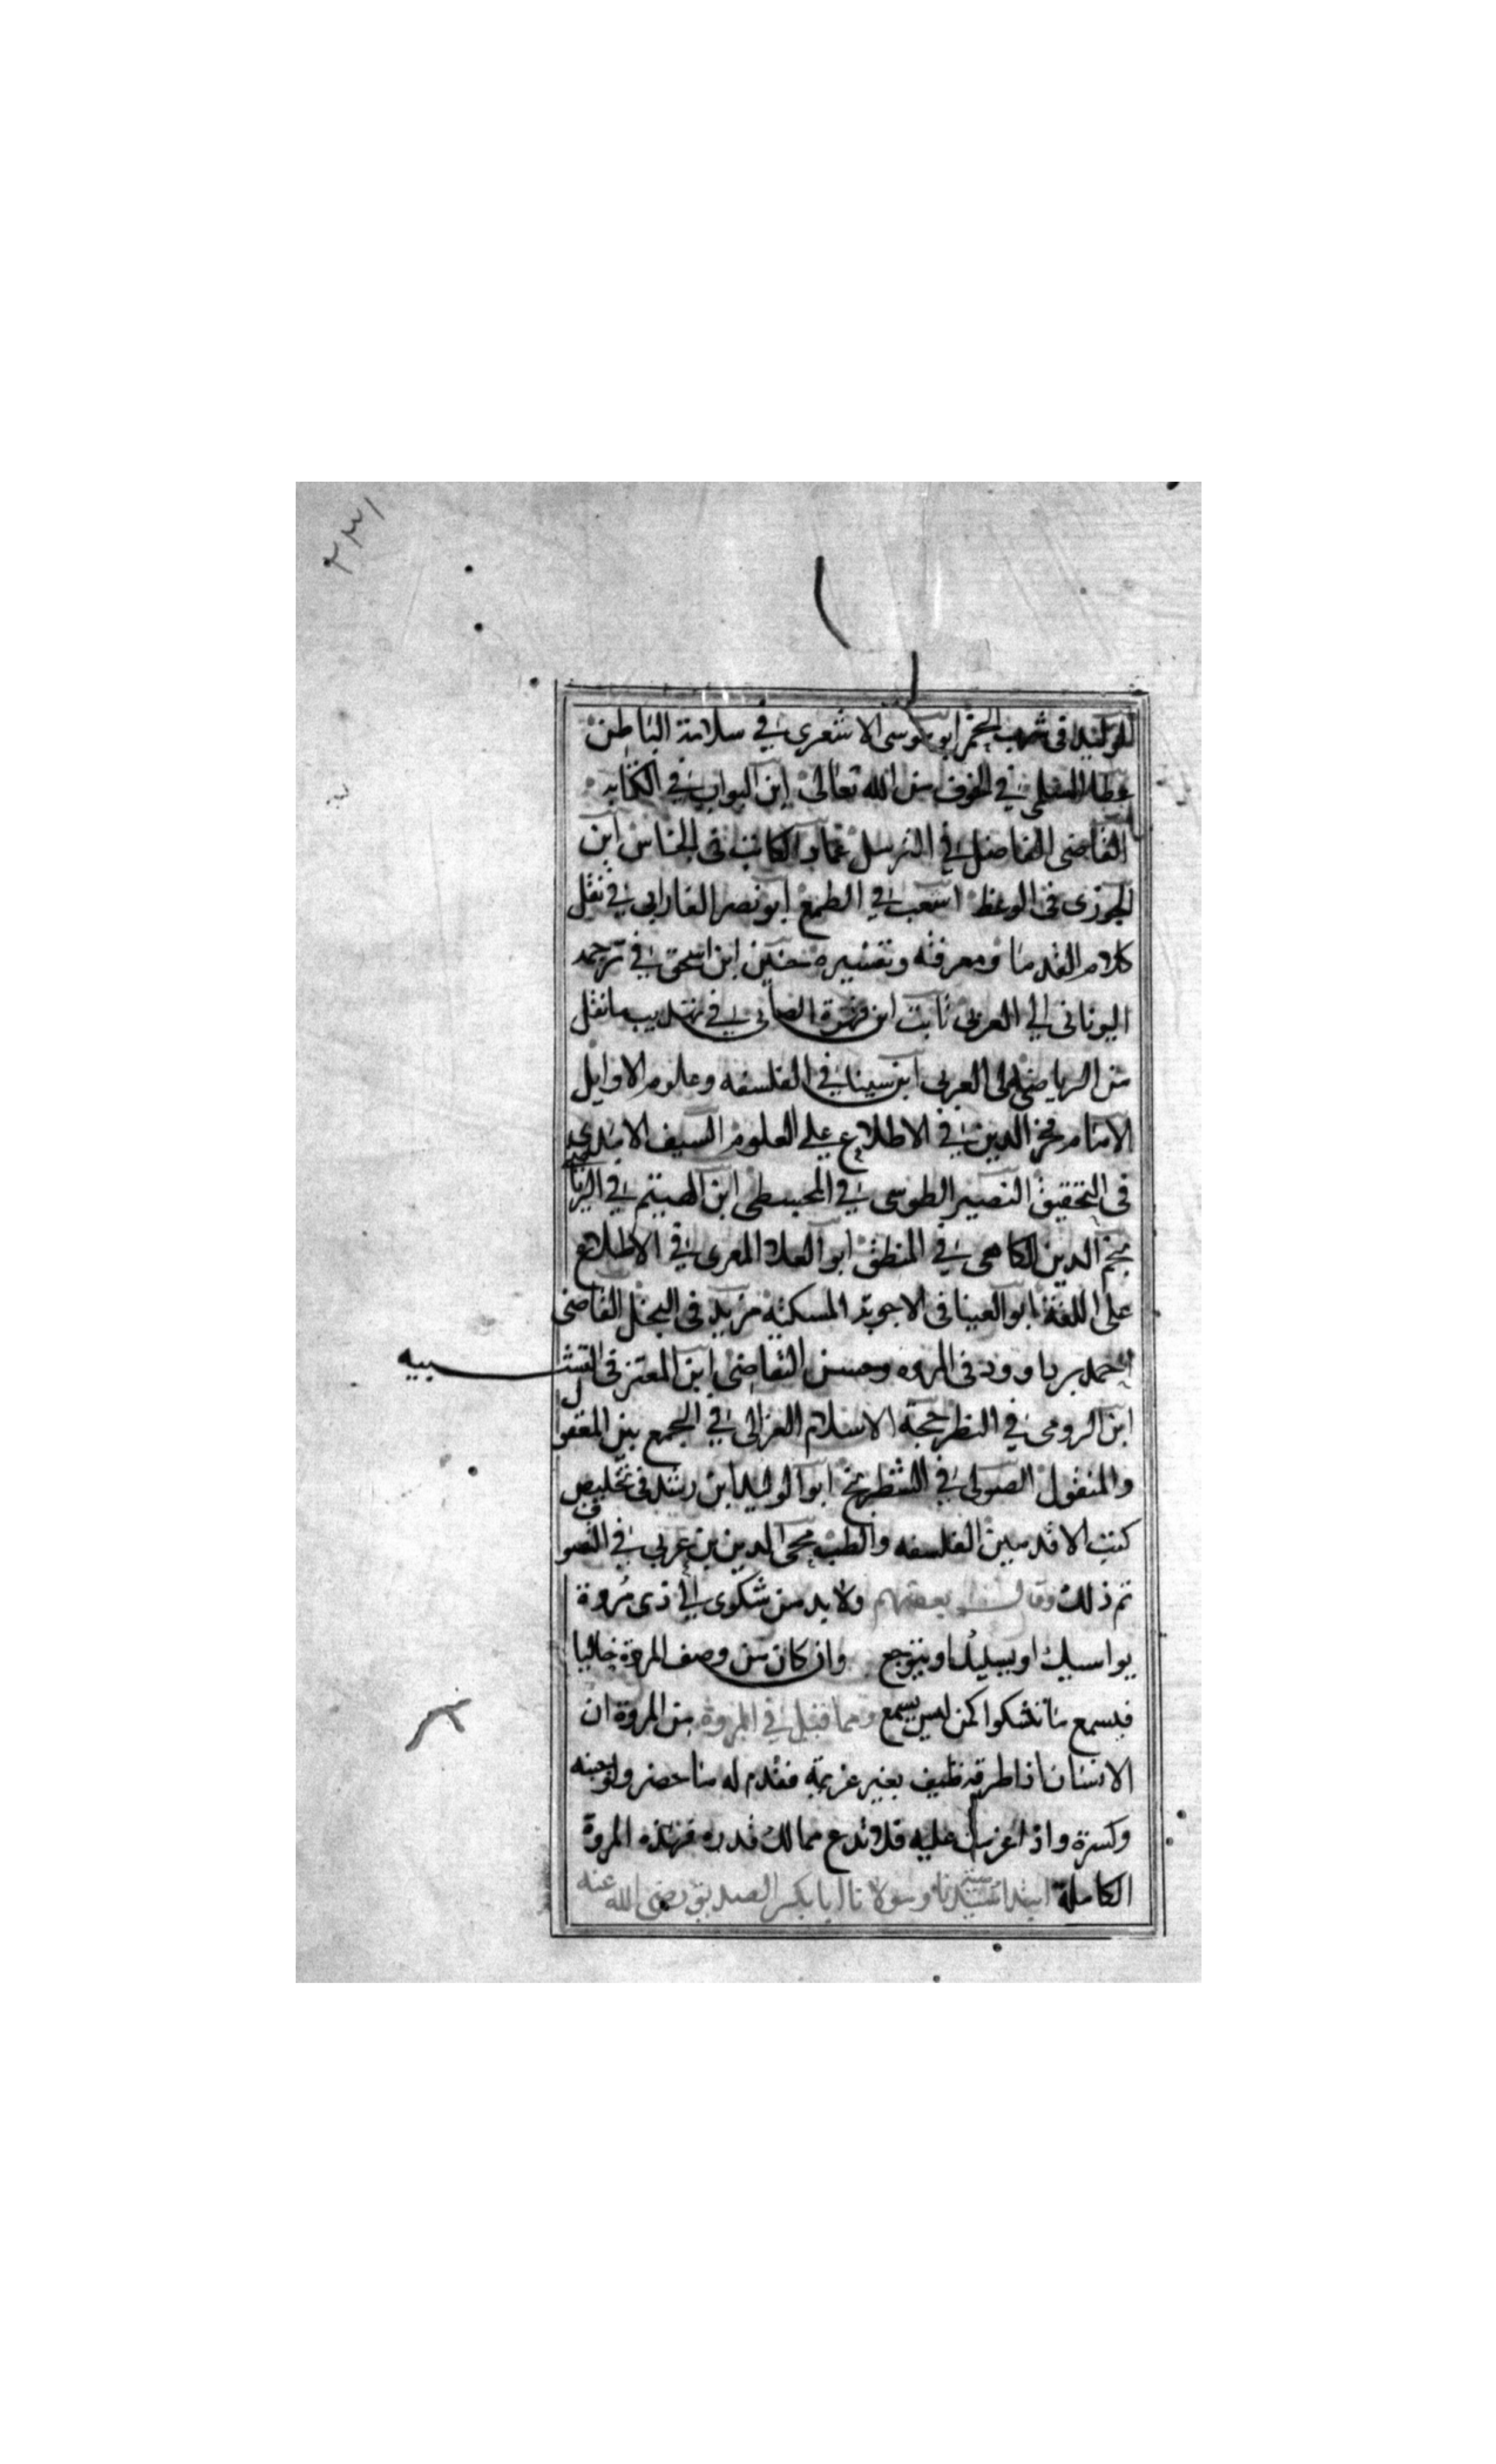 ٢٣١
الوليد في شرب الخمر ابو موسى الاشعري في سلامة الباطن
عطا السلمي في الخوف من الله تعالى ابن البواب في الكتابه
القاضي الفاضل في الترسل عماد الكاتب في الجناس ابن
الجوزي في الوعظ اشعب في الطمع ابو نصر الفارابي في نقل
كلام القدما ومعرفته وتفسيره حنين ابن اسحق في ترجمه
اليوناني الي العربي ثابت ابن قرة الصابي في تهذيب ما نقل
من الرياضي الى العربي ابن سينا في الفلسفه وعلوم الاوايل
الامام فخر الدين في الاطلاع علي العلوم السيف الامدي
في التحقيق النصير الطوسي في المجسطي ابن الهيتم في الرياضي
نجم الدين الكاتبي في المنطق ابو العلا المعري في الاطلاع
على اللغة ابو العينا في الاجوبة المسكتة مزبد في البخل القاضي
احمد بن ابي داوود في المروه وحسن التقاضي ابن المعتز في التشبيه
ابن الرومي في النظر حجة الاسلام الغزالي في الجمع بين المعقول
والمنقول الصولي في الشطرنج ابو الوليد ابن رشد في تخليص
كتب الاقدمين الفلسفه والطب محي الدين بن عربي في التصوف
تم ذلك وقال بعضهم ولا بد من شكوى الي ذي مروة
يواسيك او يسليك او يتوجع وان كان من وصف المروة خاليا
فيسمع ما تشكوا كمن ليس يسمع ومما قيل في المروة من المروة ان
الانسان اذا طرقه ضيف بغير عزيمة فقدم له ما حضر ولو جبنه
وكسرة واذا عزمت عليه فلا تدع مما لك قدره فهذه المروة
الكاملة ابتدا سيدنا ومولانا ابا بكر الصديق رضى الله عنه